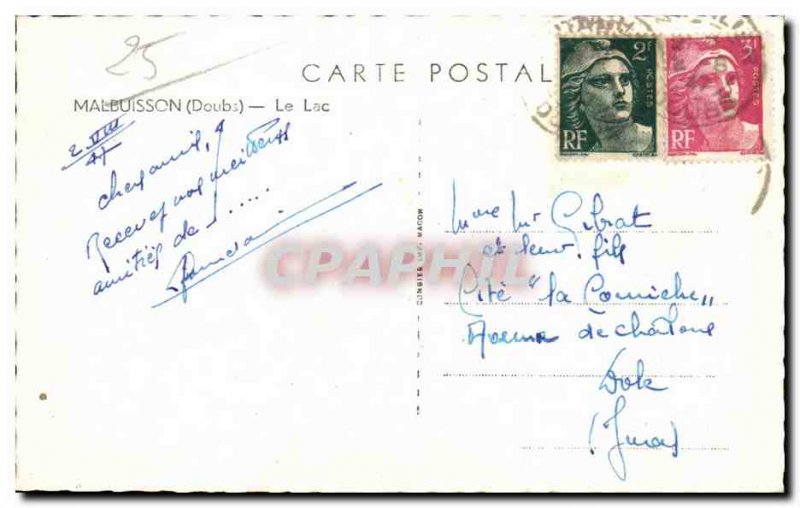 25
CARTE POSTAL
MALBUISSON (Doubs) — Le Lac
2 VIII
47
chers amis,
Recevez nos meilleures
amitiés de
2F
POSTES
RF
3F
POSTES
RF
CPAPHIL
COMBIER IMP. MACON
Mme Mr Gibrat
et leur fils
Cité "la Corniche"
de
Dole
(Jura)